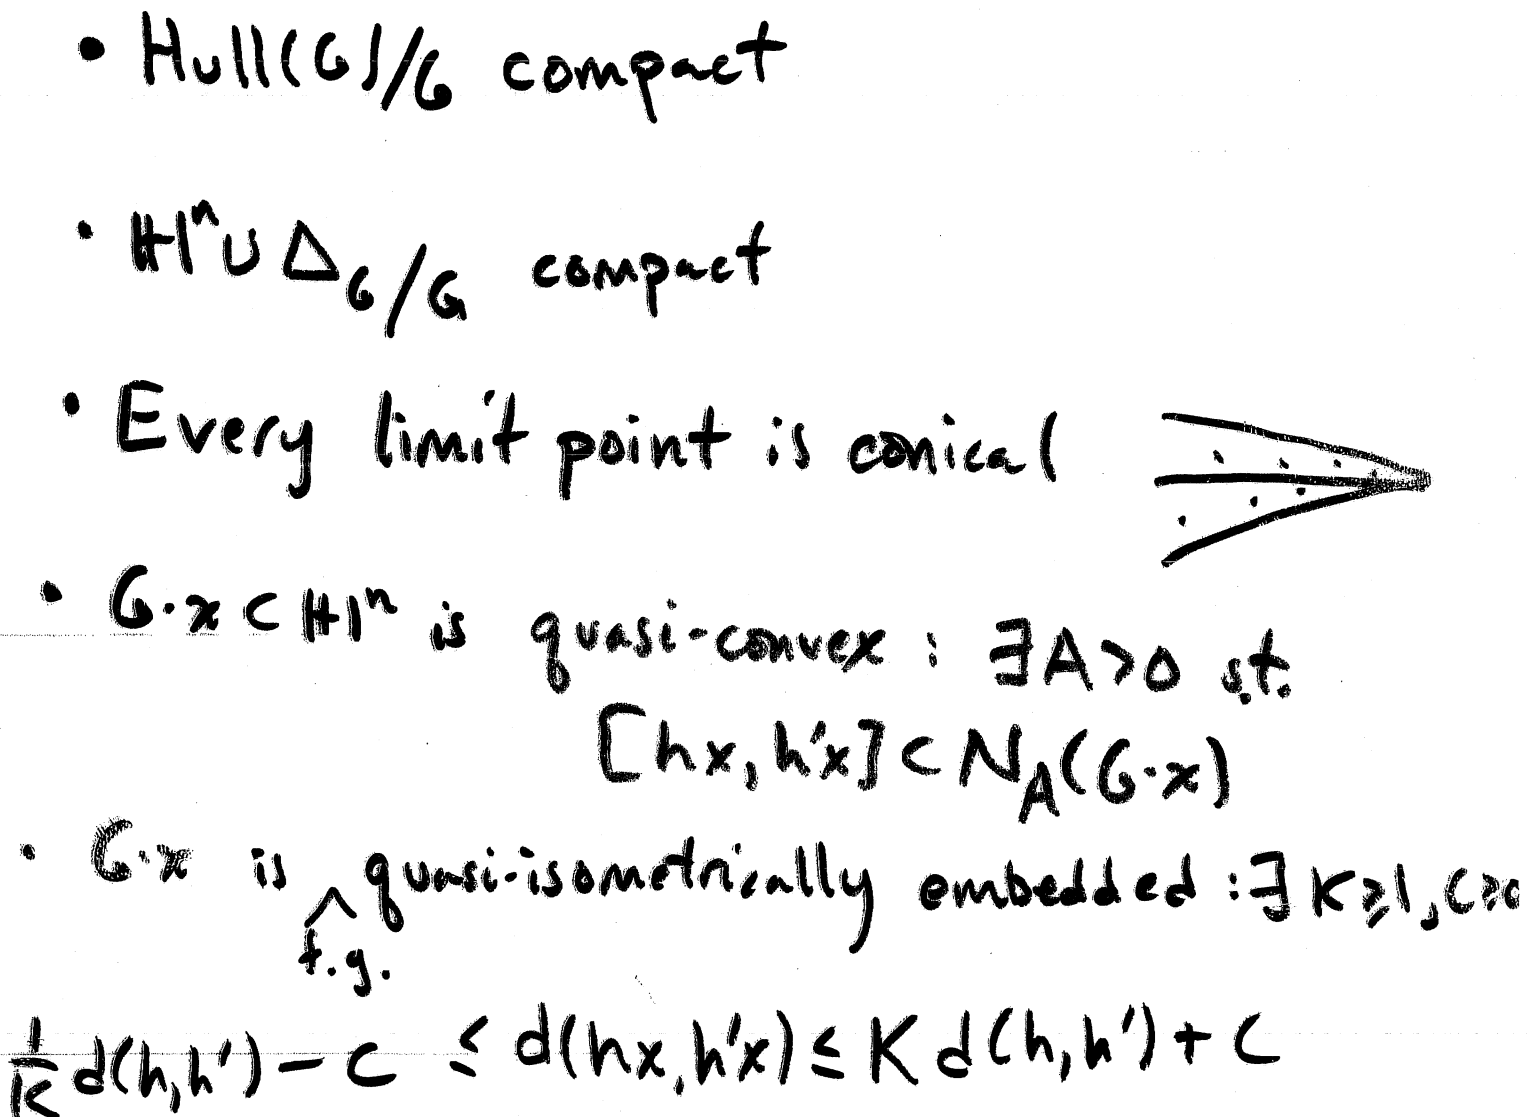 • Hull(G)/G compact
• ℍⁿ ∪ Δ_G/G compact
• Every limit point is conical
• G·x ⊂ ℍⁿ is quasi-convex : ∃A>0 s.t.
[hx, h'x] ⊂ N_A(G·x)
• G·x is ^ quasi-isometrically embedded : ∃ K≥1, C≥0
f.g.
1/K d(h,h') − C ≤ d(hx,h'x) ≤ K d(h,h') + C